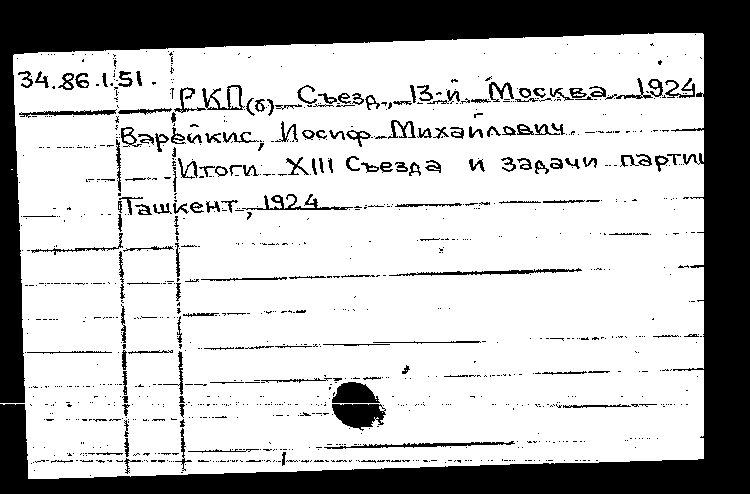 34.86.1.51.
РКП(б) Съезд, 13-й Москва 1924
Варейкис, Иосиф Михайлович.
Итоги XIII Съезда и задачи партии
Ташкент, 1924